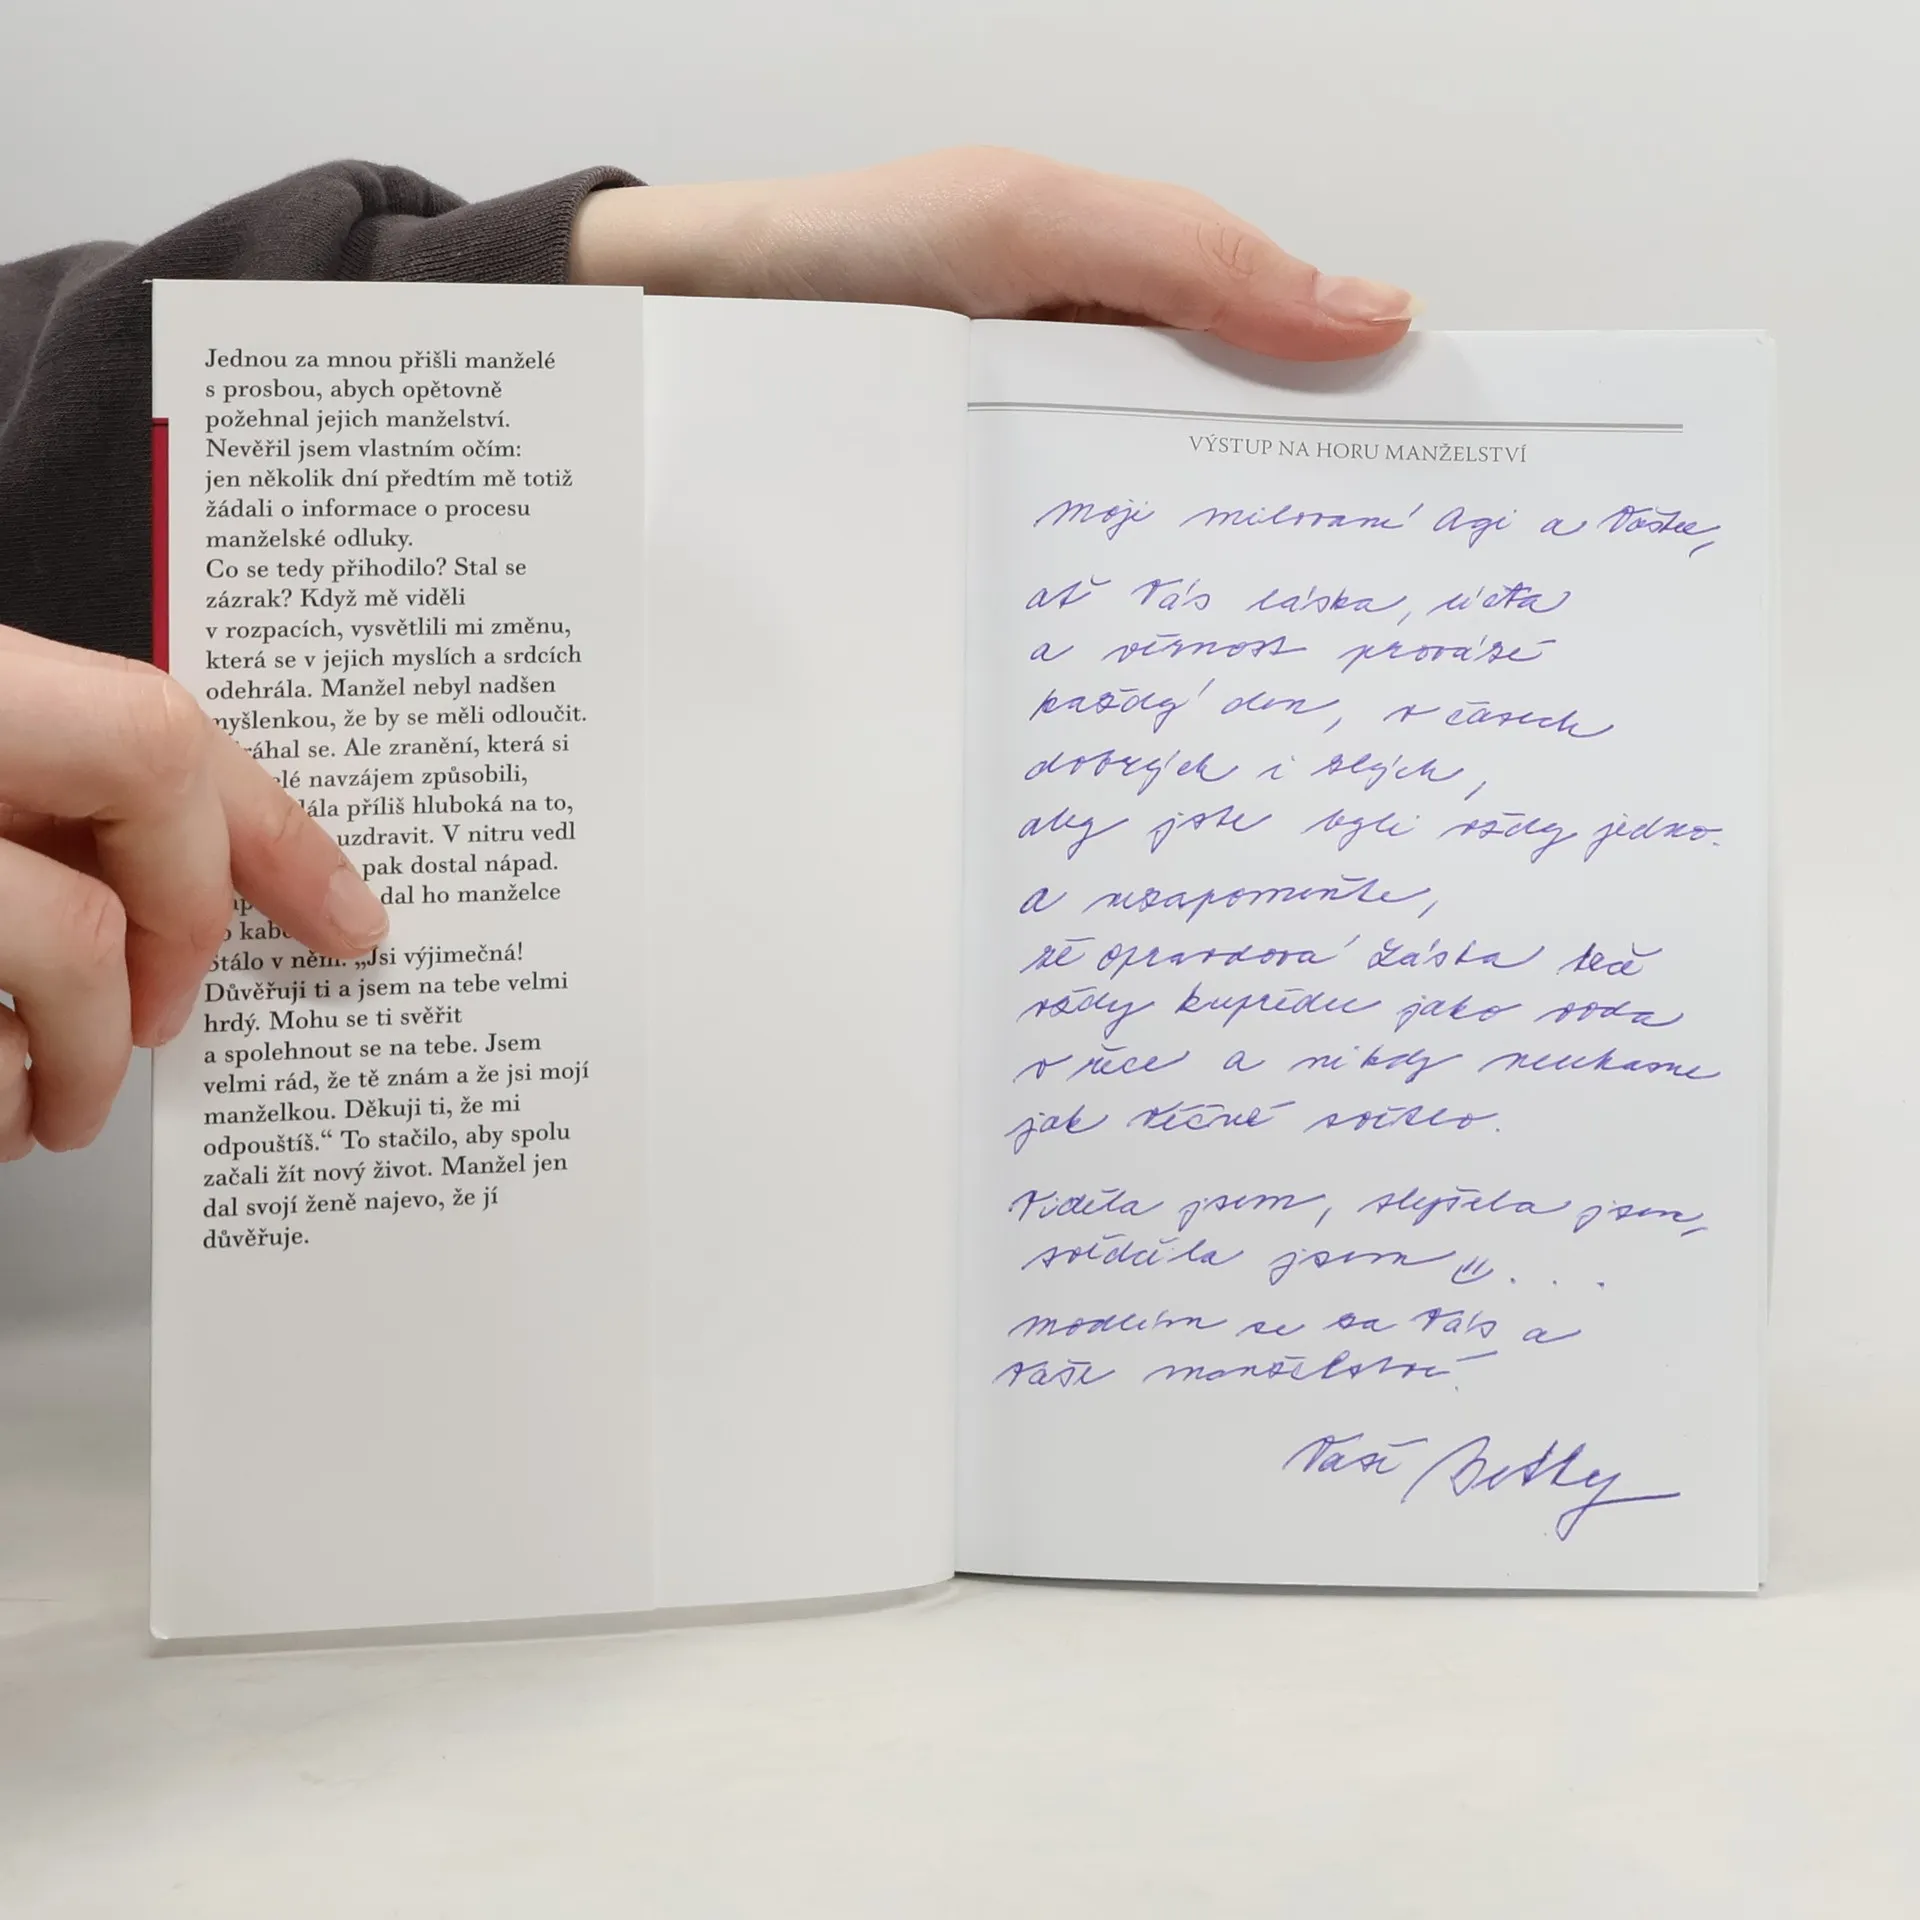 Jednou za mnou přišli manželé
s prosbou, abych opětovně
požehnal jejich manželství.
Nevěřil jsem vlastním očím:
jen několik dní předtím mě totiž
žádali o informace o procesu
manželské odluky.
Co se tedy přihodilo? Stal se
zázrak? Když mě viděli
v rozpacích, vysvětlili mi změnu,
která se v jejich myslích a srdcích
odehrála. Manžel nebyl nadšen
myšlenkou, že by se měli odloučit.
se. Ale zranění, která si
navzájem způsobili,
příliš hluboká na to,
uzdravit. V nitru vedl
pak dostal nápad.
dal ho manželce
Stálo v něm: „Jsi výjimečná!
Důvěřuji ti a jsem na tebe velmi
hrdý. Mohu se ti svěřit
a spolehnout se na tebe. Jsem
velmi rád, že tě znám a že jsi mojí
manželkou. Děkuji ti, že mi
odpouštíš.“ To stačilo, aby spolu
začali žít nový život. Manžel jen
dal svojí ženě najevo, že jí
důvěřuje.
VÝSTUP NA HORU MANŽELSTVÍ
Moji milovaní Agi a
ať Vás láska, úcta
a věrnost provází
každý den, v časech
dobrých i zlých,
aby jste byli vždy jedno.
A nezapomeňte,
že opravdová Láska teče
vždy kupředu jako voda
v řece a nikdy neuhasne
jak věčné světlo.
Viděla jsem, slyšela jsem,
svědčila jsem ☺. . .
Modlím se za Vás a
Vaše manželství!
Vaše Betky